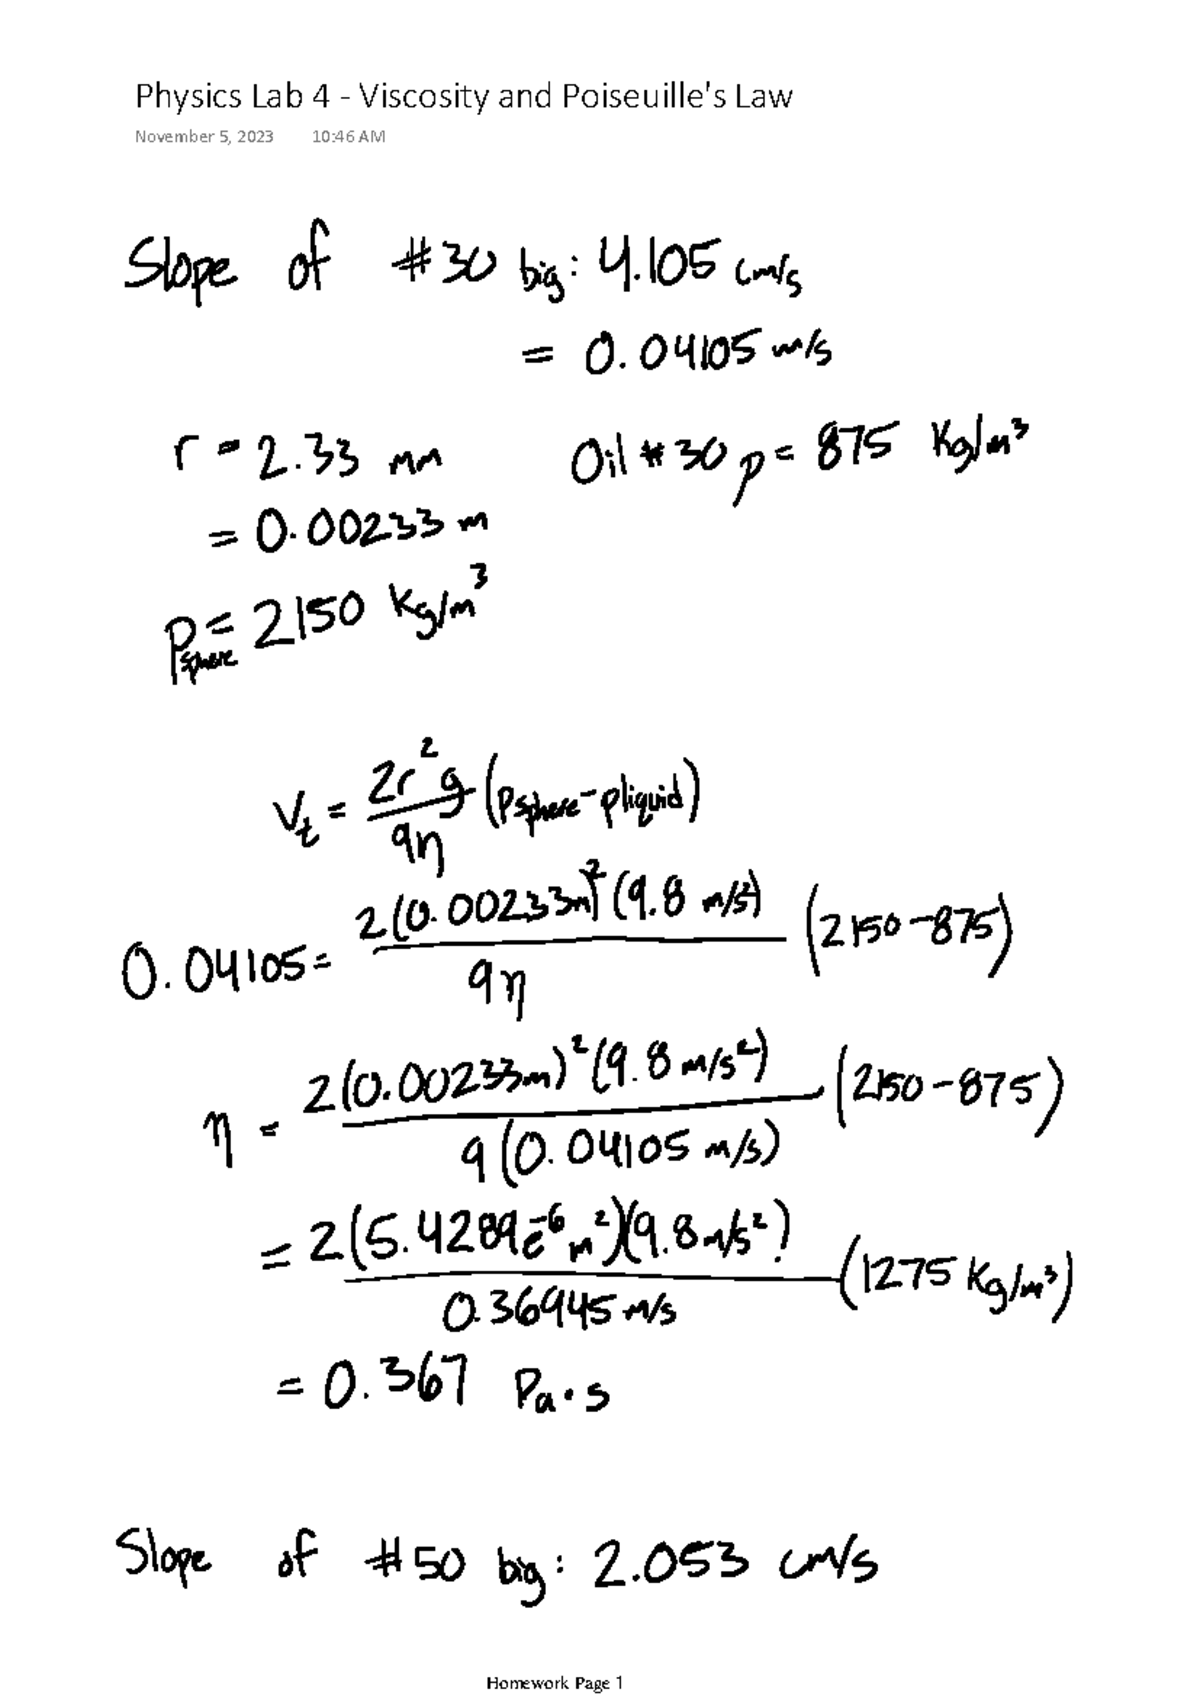 Physics Lab 4 - Viscosity and Poiseuille's Law
November 5, 2023 10:46 AM
Slope of #30 big: 4.105 cm/s
= 0.04105 m/s
r = 2.33 mm Oil #30 p = 875 Kg/m³
= 0.00233 m
Psphere = 2150 Kg/m³
Vt = 2r²g/9η (psphere - pliquid)
0.04105 = 2(0.00233m)²(9.8 m/s²)/9η (2150-875)
η = 2(0.00233m)²(9.8 m/s²)/9(0.04105 m/s) (2150-875)
= 2(5.4289e⁻⁶m²)(9.8m/s²)/0.36945 m/s (1275 Kg/m³)
= 0.367 Pa·s
Slope of #50 big: 2.053 cm/s
Homework Page 1